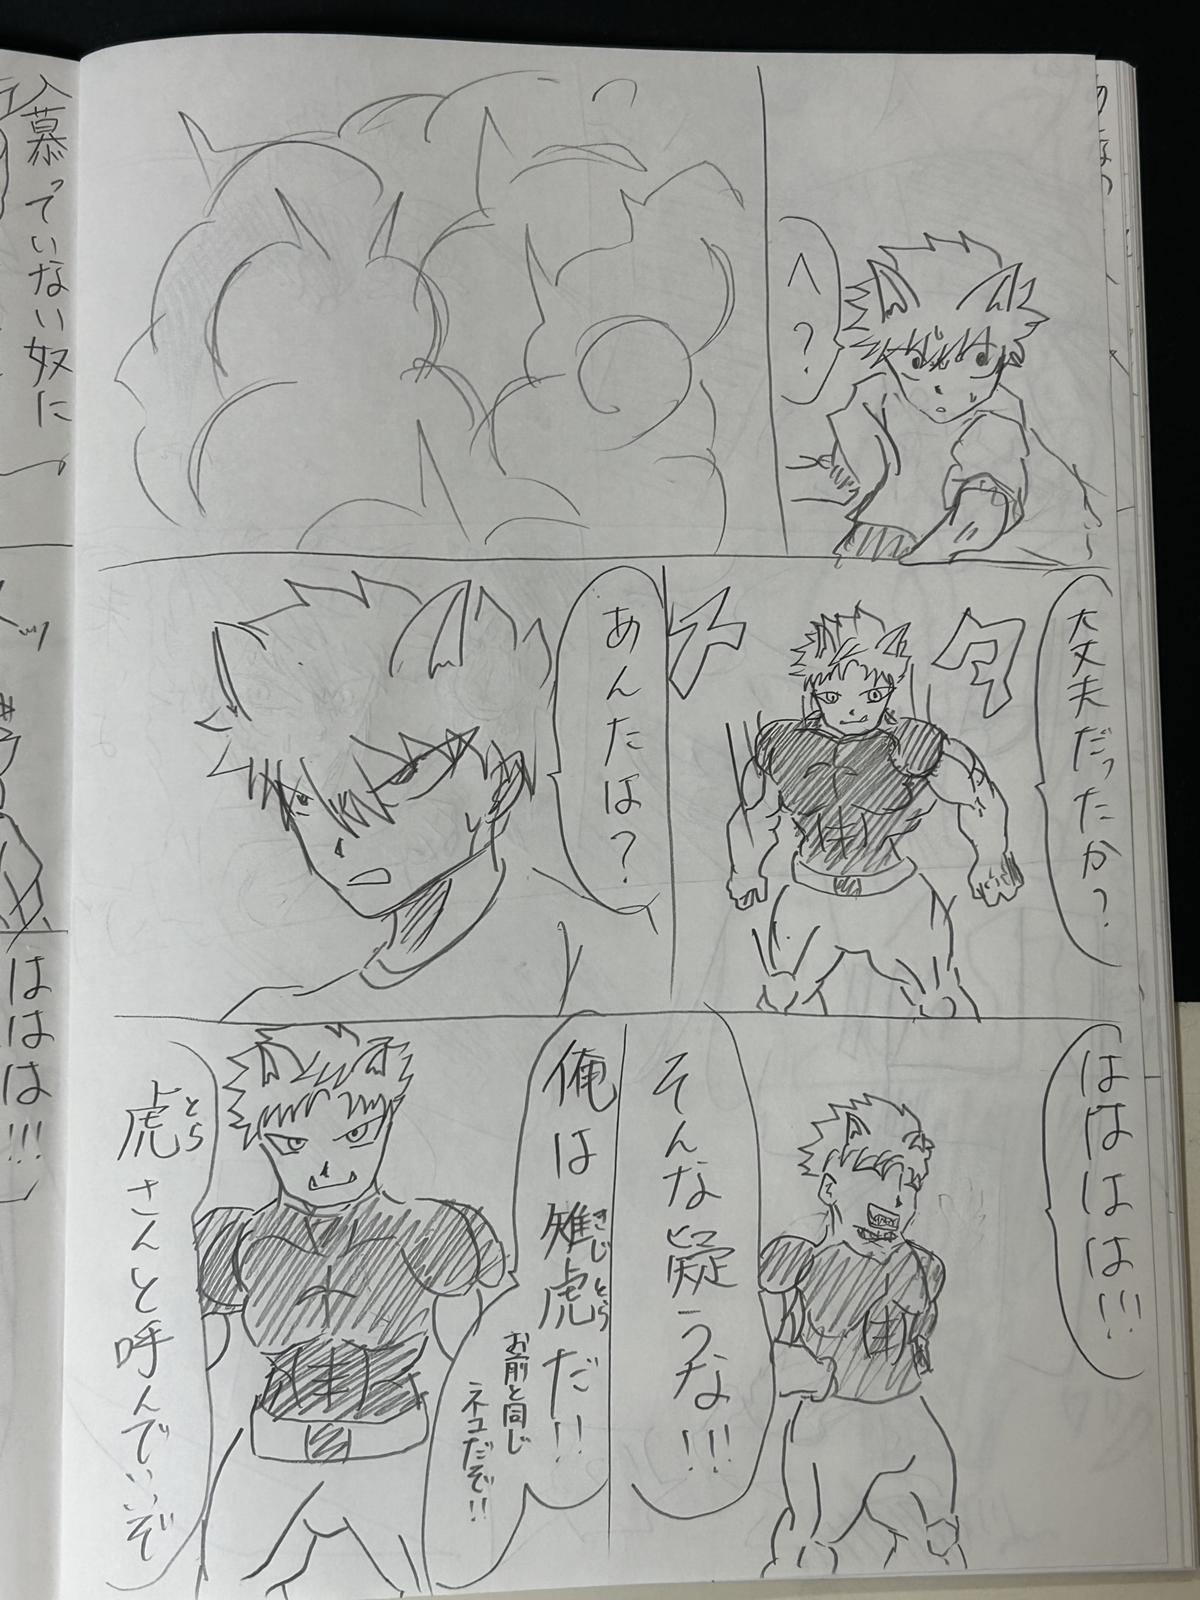 へ?
大丈夫だったか?
あんたは?
ははははは!!!
そんな疑うな!!!
俺は雉虎だ!!
きじとら
お前と同じ
ネコだぞ!!
虎さんと呼んでいいぞ
とら
慕っていない奴に
ははは!!!